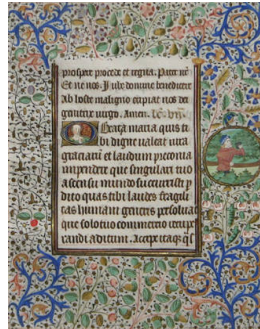 prospere procede et regna. Pater nr̄
Et ne nos. Jube domne benedicere
Ab hoste maligno eripiat nos dei
genetrix virgo. Amen. Lc̄.
O Beata maria quis ti
bi digne valeat iura
gratiarū et laudum preconia
impendere que singulari tuo
assensu mundo succurristi p
dito quas tibi laudes fragili
tas humani generis persoluat
que solo tuo commertio recupe
randi aditum. Accipe itaqȝ